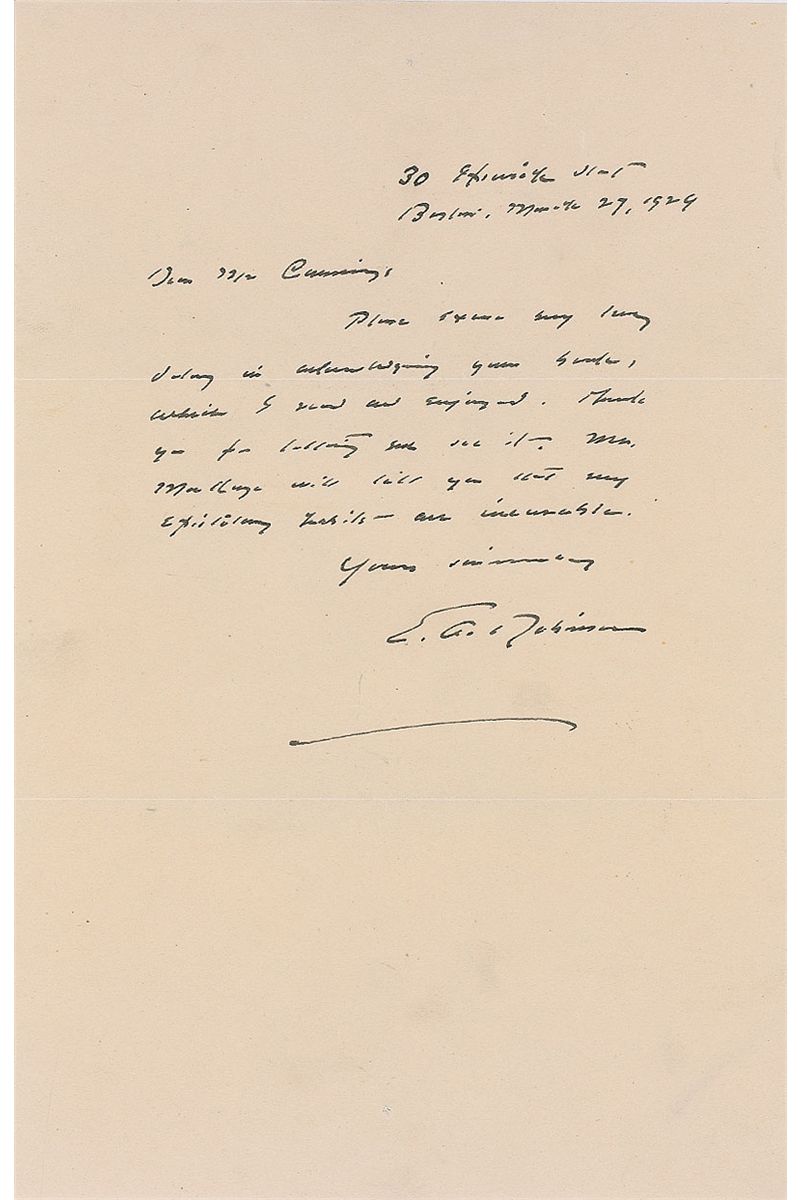 30 Ipswich Street
Boston, March 27, 1929
Dear Mr Cummings
Please excuse my long
delay in acknowledging your book,
which I read and enjoyed. Thank
you for letting me see it. Mr.
will tell you that my
epistolary habits are incurable.
Yours sincerely
E. A. Robinson